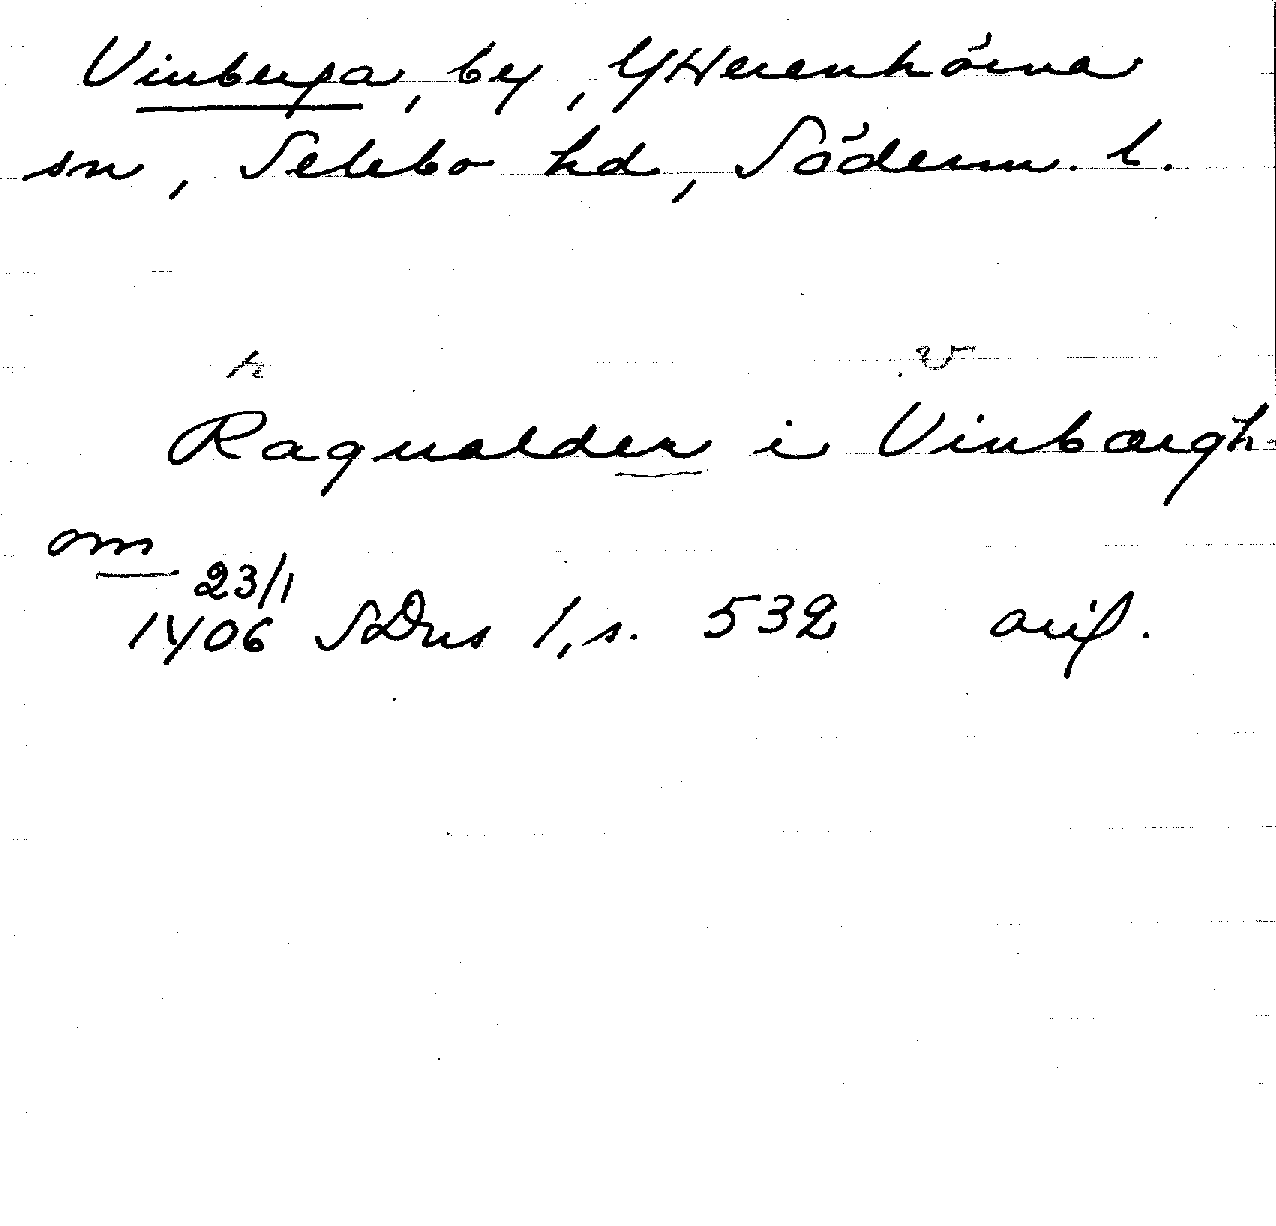 Vinberga, by, Ytterenhörna
sn, Selebo hd, Söderm. l.
r v
Ragualder i Vinbærgh-
om
23/1
1406 SDns 1, s. 532 avs.